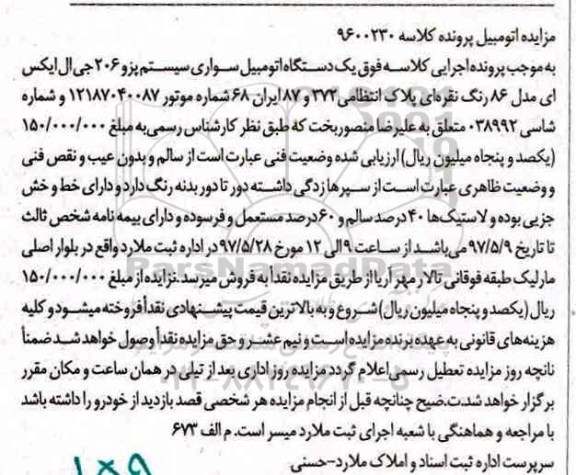 مزایده اتومبیل پرونده کلاسه ۹۶۰۰۲۳۰
به موجب پرونده اجرایی کلاسه فوق یک دستگاه اتومبیل سواری سیستم پژو ۲۰۶ جی ال ایکس
ای مدل ۸۶ رنگ نقره‌ای پلاک انتظامی ۳۷۲ و ۸۷ ایران ۶۸ شماره موتور ۱۲۱۸۷۰۴۰۰۸۷ و شماره
شاسی ۰۳۸۹۹۲ متعلق به علیرضا منصوربخت که طبق نظر کارشناس رسمی به مبلغ ۱۵۰/۰۰۰/۰۰۰
(یکصد و پنجاه میلیون ریال) ارزیابی شده وضعیت فنی عبارت است از سالم و بدون عیب و نقص فنی
و وضعیت ظاهری عبارت است از سپرها زدگی داشته دور تا دور بدنه رنگ دارد و دارای خط و خش
جزیی بوده و لاستیک‌ها ۴۰ درصد سالم و ۶۰ درصد مستعمل و فرسوده و دارای بیمه نامه شخص ثالث
تا تاریخ ۹۷/۵/۹ می‌باشد از ساعت ۹ الی ۱۲ مورخ ۹۷/۵/۲۸ در اداره ثبت ملارد واقع در بلوار اصلی
مارلیک طبقه فوقانی تالار مهر آریا از طریق مزایده نقداً به فروش میرسد.نزایده از مبلغ ۱۵۰/۰۰۰/۰۰۰
ریال (یکصد و پنجاه میلیون ریال) شروع و به بالاترین قیمت پیشنهادی نقداً فروخته میشود و کلیه
هزینه‌های قانونی به عهده برنده مزایده است و نیم عشر و حق مزایده نقداً وصول خواهد شد ضمناً
نانچه روز مزایده تعطیل رسمی اعلام گردد مزایده روز اداری بعد از تیلی در همان ساعت و مکان مقرر
برگزار خواهد شد.ت.ضیح چنانچه قبل از انجام مزایده هر شخصی قصد بازدید از خودرو را داشته باشد
با مراجعه و هماهنگی با شعبه اجرای ثبت ملارد میسر است. م الف ۶۷۳
سرپرست اداره ثبت اسناد و املاک ملارد-حسنی
ParsNamadData